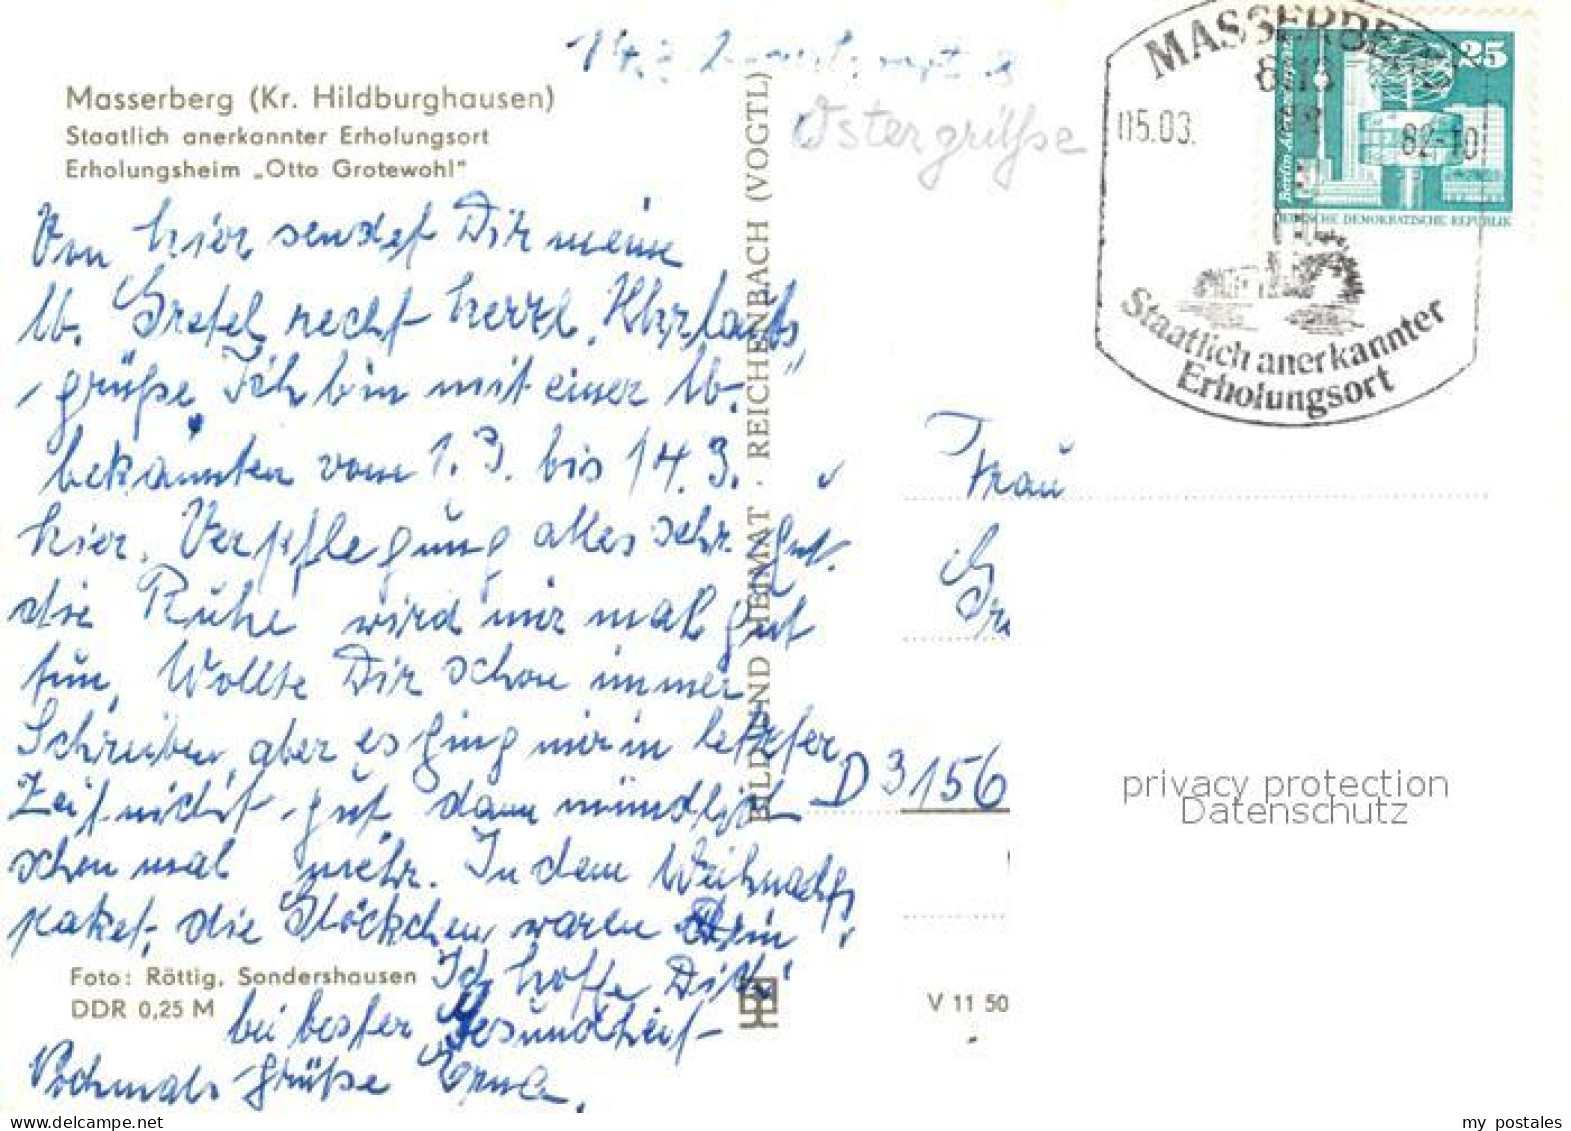 Masserberg (Kr. Hildburghausen)
Staatlich anerkannter Erholungsort
Erholungsheim „Otto Grotewohl"
Von hier sendet Dir meine
lb. Gretel recht herzl. Urlaubs
grüße. Ich bin mit einer lb.
bekannten vom 1.3. bis 14.3.
hier. Verpflegung alles sehr gut.
die Ruhe wird mir mal gut
tun. Wollte Dir schon immer
Schreiben, aber es ging mir in letzter
Zeit nicht gut, dann mündlich
schon mal mehr. In dem Weihnachts
paket, die Glöckchen waren
Ich hoffe Dich
bei bester Gesundheit
Nochmals Grüße Erna.
Foto: Röttig, Sondershausen
DDR 0,25 M
BILD UND HEIMAT · REICHENBACH (VOGTL)
14.3.
Ostergrüße
MASSERBERG
15.03. 82-10
Staatlich anerkannter
Erholungsort
25
DEUTSCHE DEMOKRATISCHE REPUBLIK
Frau
D 3156
V 11 50
privacy protection
Datenschutz
my_postales